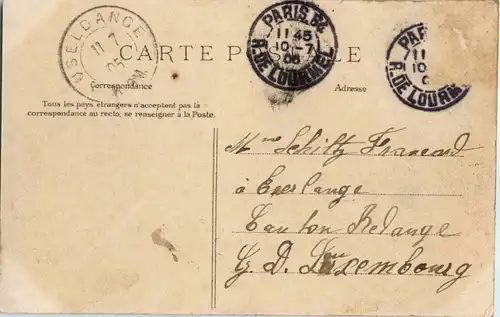 USELDANGE
11 7
05
CARTE POSTALE
PARIS 84
11 45
10 -7
05
R. DE LOURMEL
PAR
11
10
R. DE LOURM
Correspondance
Adresse
Tous les pays étrangers n'acceptent pas la
correspondance au recto, se renseigner à la Poste.
Mme Schiltz Francard
à Everlange
Canton Redange
G. D. Luxembourg